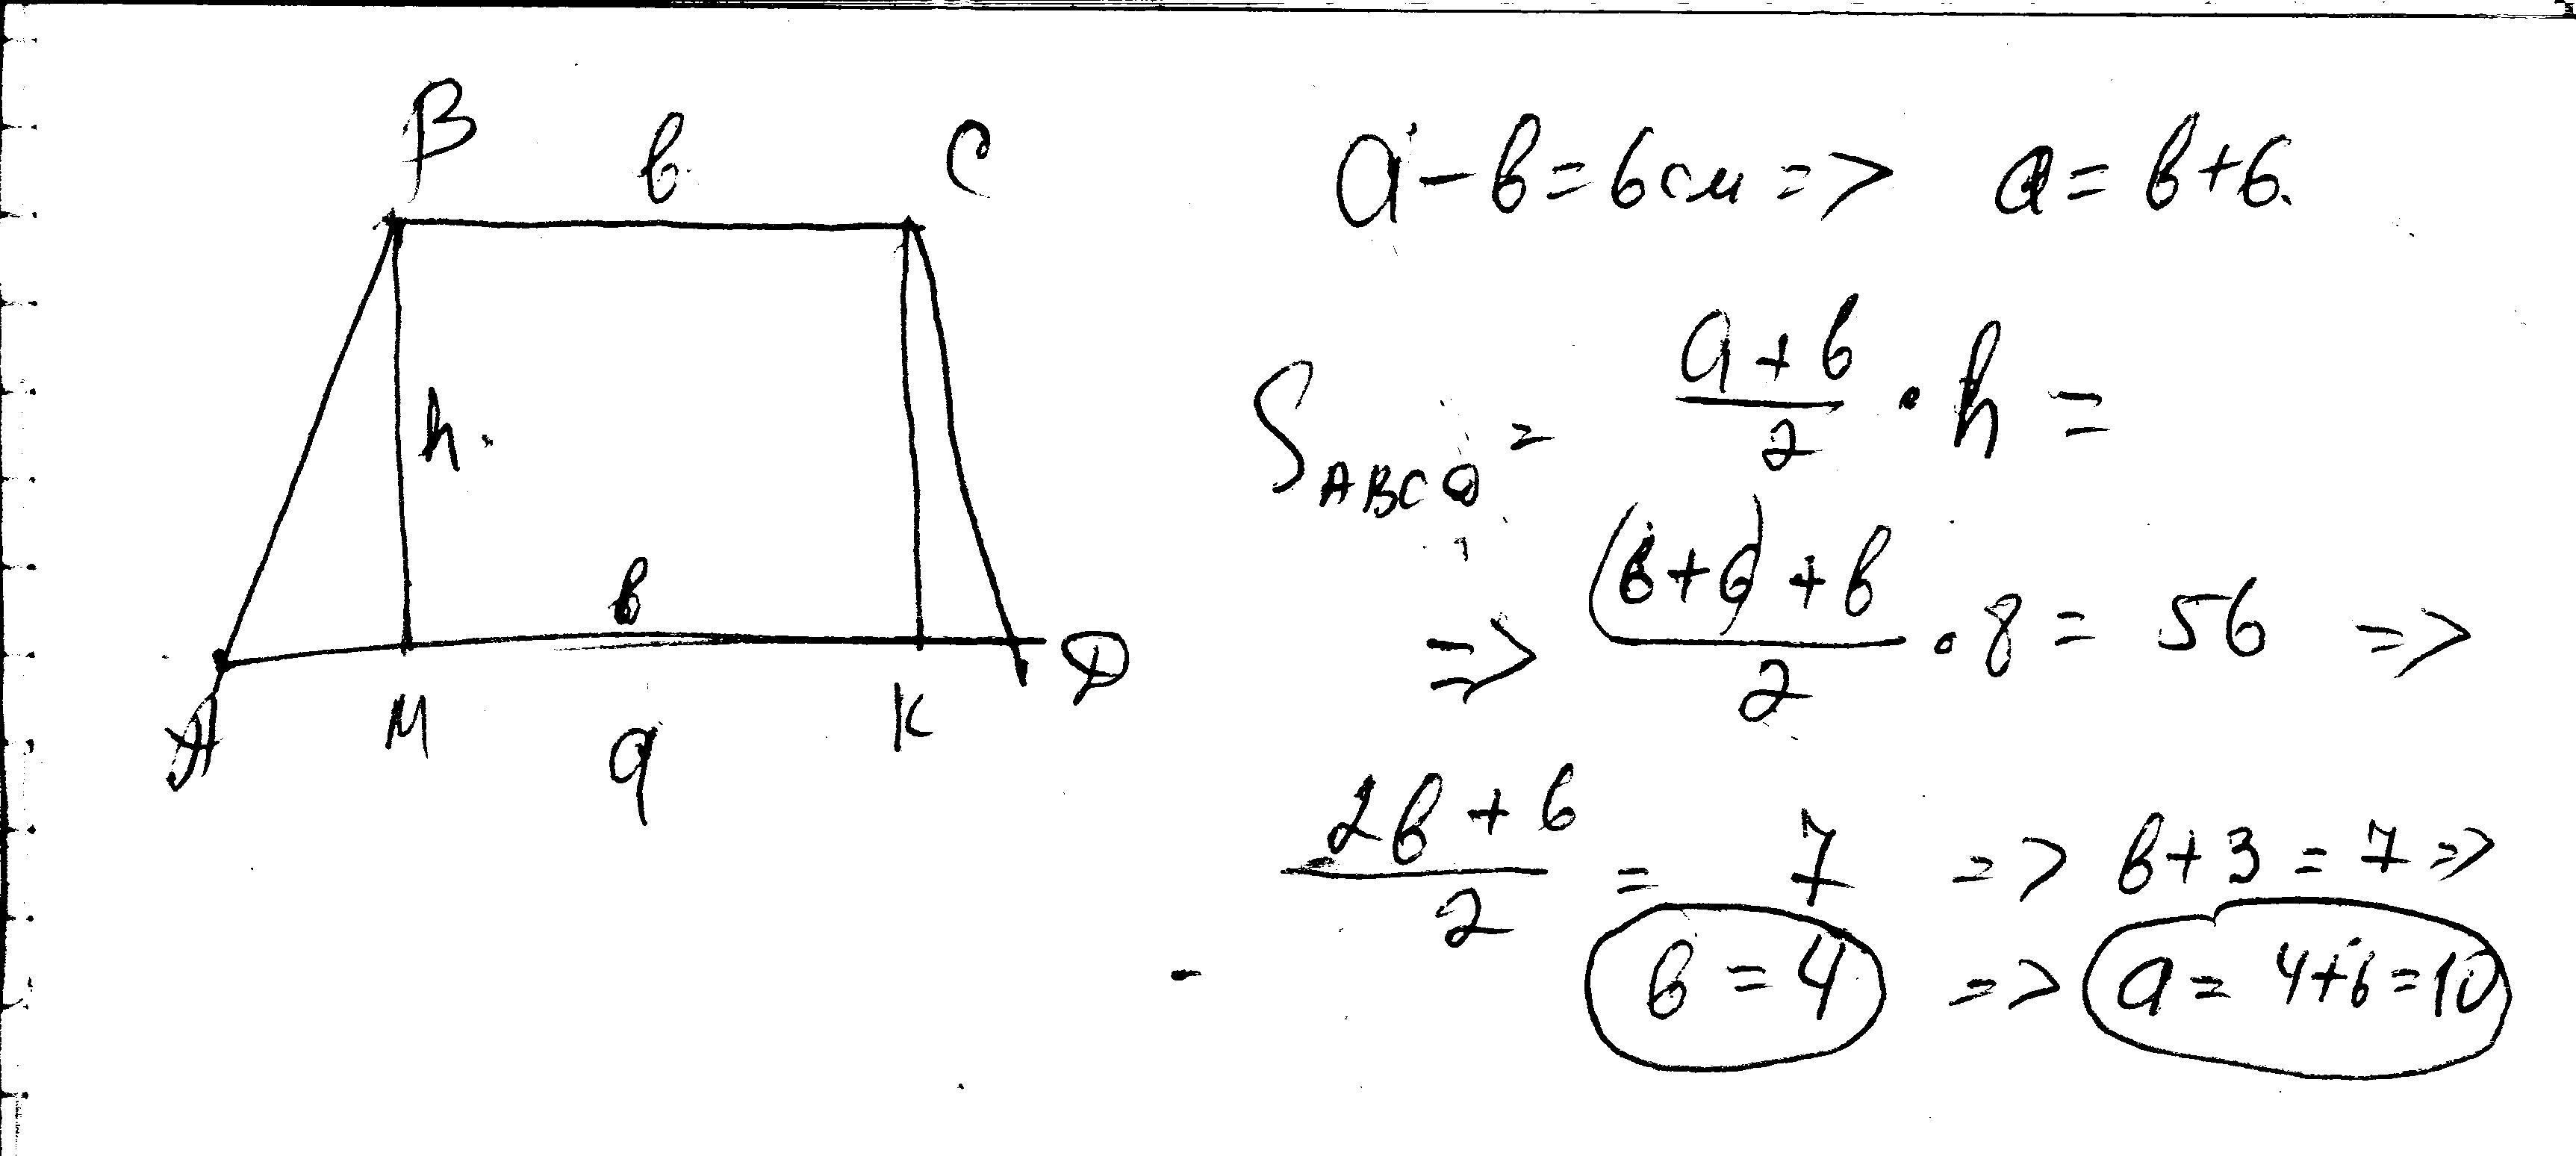 B в C
h.
в
A M K D
a
a - в = 6 см => a = в + 6.
S_ABCD = (a + в)/2 · h =
=> ((в + 6) + в)/2 · 8 = 56 =>
(2в + 6)/2 = 7 => в + 3 = 7 =>
в = 4 => a = 4 + 6 = 10